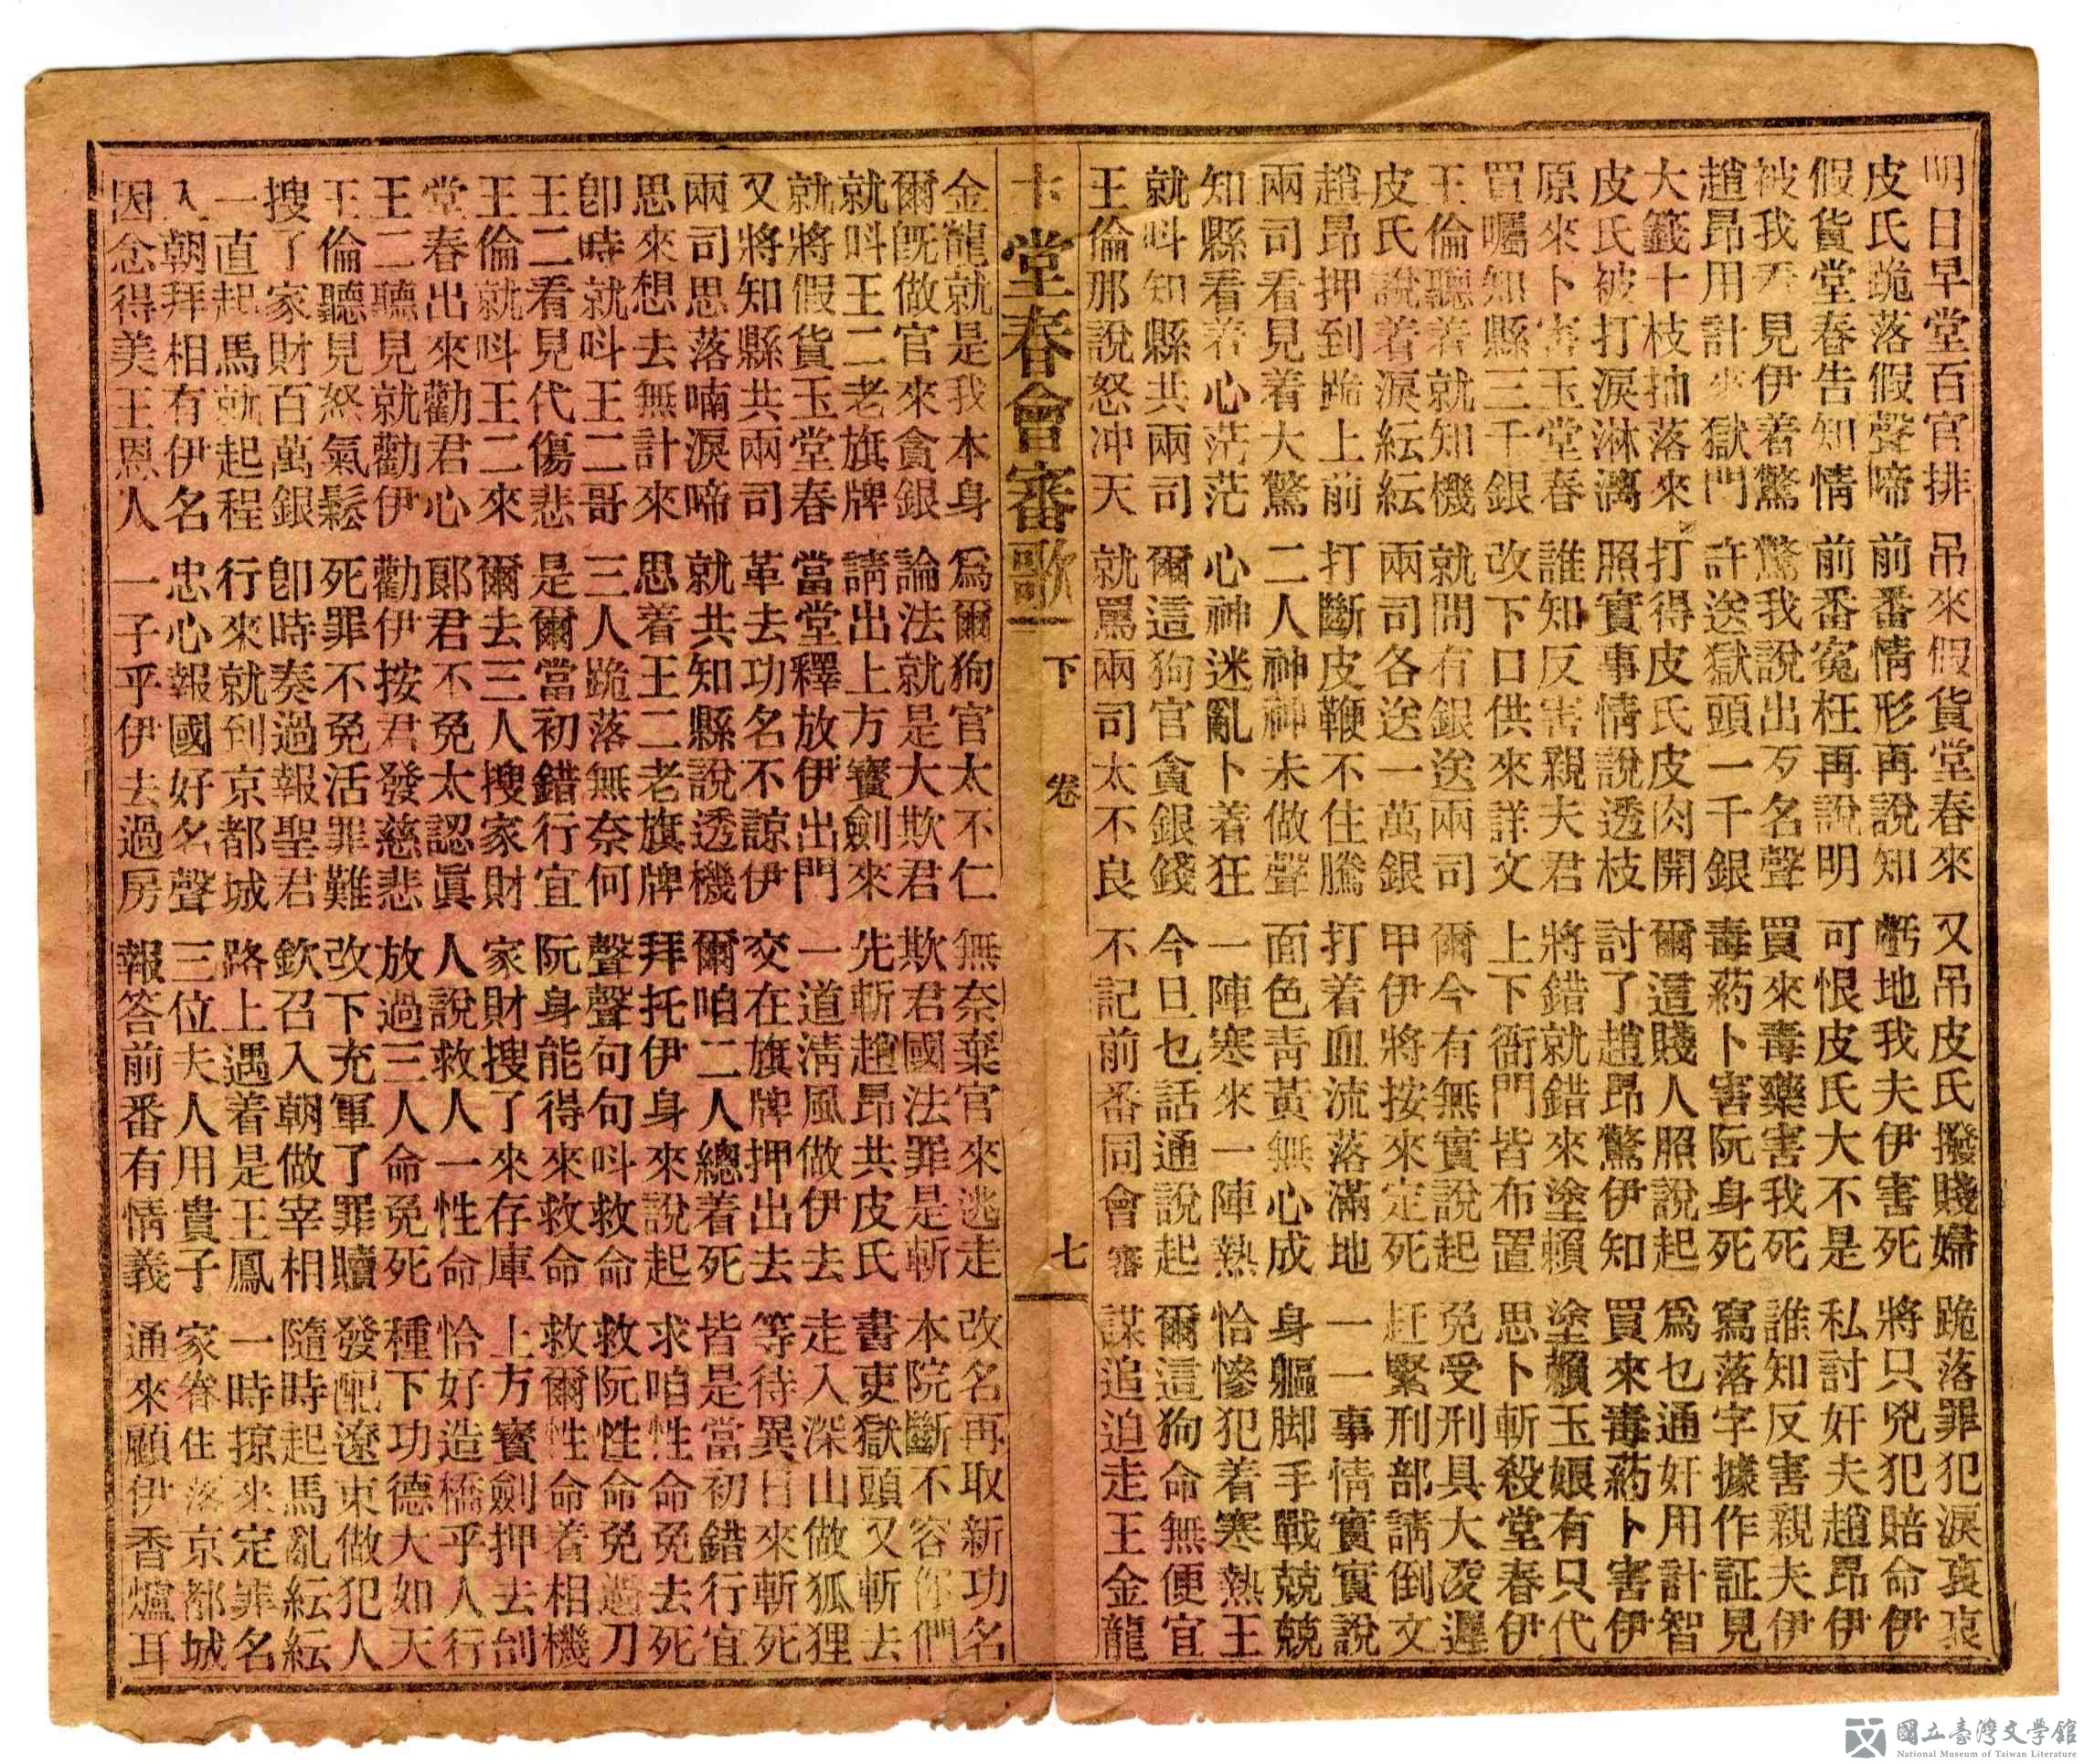 明日早堂百官排 吊來假貨堂春來 又吊皮氏撥賤婦 跪落罪犯淚哀哀
皮氏跪落假聲啼 前番情形再說知 虧地我夫伊害死 將只兇犯賠命伊
假貨堂春告知情 前番冤枉再說明 可恨皮氏大不是 私討奸夫趙昂伊
被我看見伊着驚 驚我說出歹名聲 買來毒藥害我死 誰知反害親夫伊
趙昂用計來獄門 許送獄頭一千銀 毒葯卜害阮身死 寫落字據作証見
大籤十枝抽落來 打得皮氏皮肉開 爾這賤人照說起 為乜通奸用計智
皮氏被打淚淋漓 照實事情說透枝 討了趙昂驚伊知 買來毒葯卜害伊
原來卜害玉堂春 誰知反害親夫君 將錯就錯來塗賴 塗賴玉娘有只代
買囑知縣三千銀 改下口供來詳文 上下衙門皆布置 思卜斬殺堂春伊
王倫聽着就知機 就問有銀送兩司 爾今有無實說起 免受刑具大凌遲
皮氏說着淚紜紜 兩司各送一萬銀 甲伊將按來定死 赶緊刑部請倒文
趙昂押到跪上前 打斷皮鞭不住騰 打着血流落滿地 一一事情實實說
兩司看見着大驚 二人神神未做聲 面色青黃無心成 身軀脚手戰兢兢
知縣看着心茫茫 心神迷亂卜着狂 一陣寒來一陣熱 恰慘犯着寒熱王
就呌知縣共兩司 爾這狗官貪銀錢 今旦乜話通說起 爾這狗命無便宜
王倫那說怒冲天 就罵兩司太不良 不記前番同會審 謀追迫走王金龍
堂春會審歌 下 卷 七
金龍就是我本身 為爾狗官太不仁 無奈棄官來逃走 改名再取新功名
爾既做官來貪銀 論法就是大欺君 欺君國法罪是斬 本院斷不容你們
就呌王二老旗牌 請出上方寶劍來 先斬趙昂共皮氏 書吏獄頭又斬去
就將假貨玉堂春 當堂釋放伊出門 一道清風做伊去 走入深山做狐狸
又將知縣共兩司 革去功名不諒伊 交在旗牌押出去 等待異日來斬死
兩司思落喃淚啼 就共知縣說透機 爾咱二人總着死 皆是當初錯行宜
思來想去無計來 思着王二老旗牌 拜托伊身來說起 求咱性命免去死
卽時就呌王二哥 三人跪落無奈何 聲聲句句呌救命 救阮性命免過刀
王二看見代傷悲 是爾當初錯行宜 阮身能得來救命 救爾性命着相機
王倫就呌王二來 爾去三人搜家財 家財搜了來存庫 上方寶劍押去刣
堂春出來勸君心 郞君不免太認眞 人說救人一性命 恰好造橋乎人行
王二聽見就勸伊 勸伊按君發慈悲 放過三人命免死 種下功德大如天
王倫聽見怒氣鬆 死罪不免活罪難 改下充軍了罪贖 發配遼東做犯人
搜了家財百萬銀 卽時奏過報聖君 欽召入朝做宰相 隨時起馬亂紜紜
一直起馬就起程 行來就到京都城 路上遇着是王鳳 一時掠來定罪名
入朝拜相有伊名 忠心報國好名聲 三位夫人用貴子 家眷住落京都城
因念得美王恩人 一子乎伊去過房 報答前番有情義 通來顧伊香爐耳
國立臺灣文學館
National Museum of Taiwan Literature